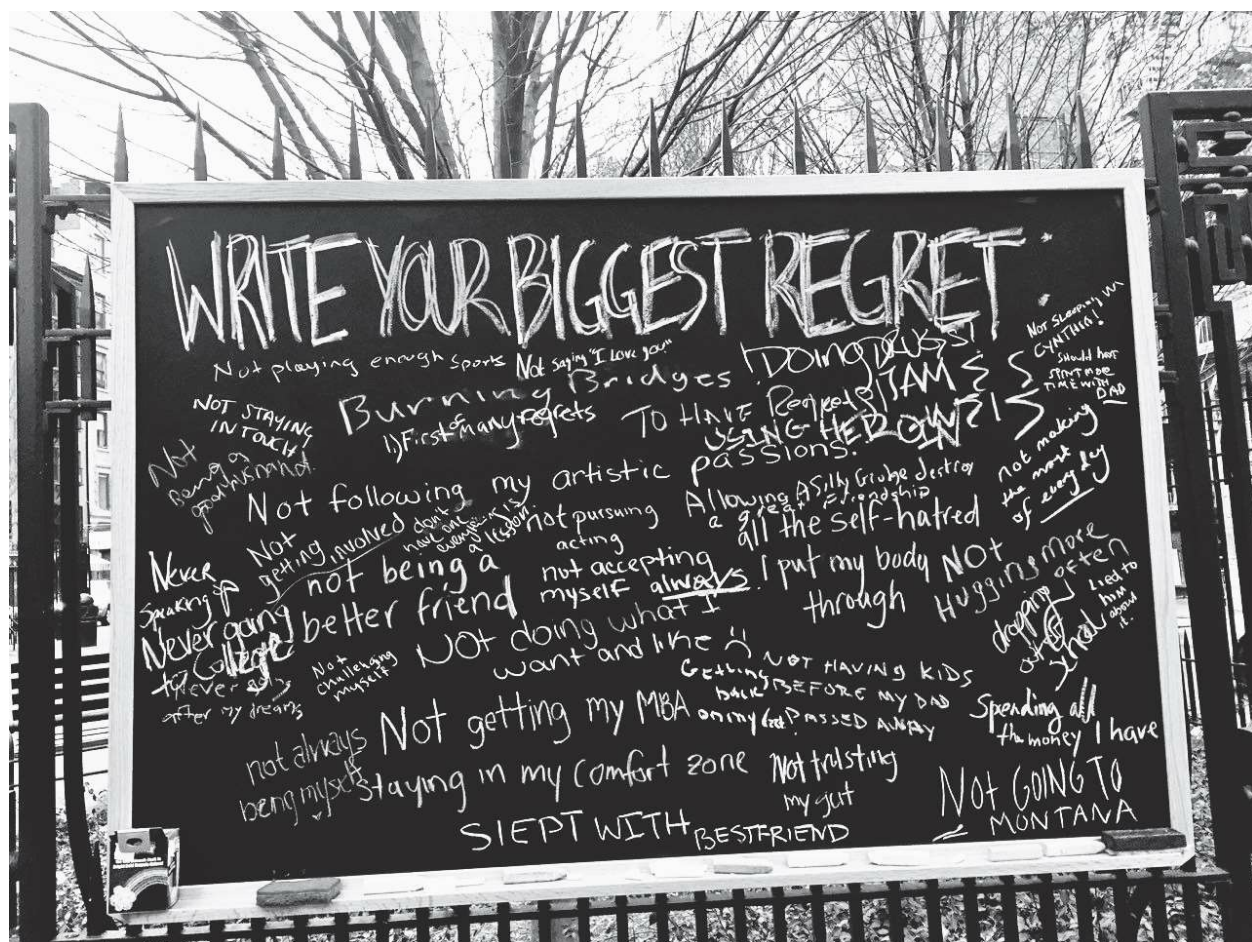 WRITE YOUR BIGGEST REGRET:
Not playing enough sports
Not saying "I love you."
!DOING DRUGS!
NOT SLEEPING W/
CYNTHIA!
Should have
SPENT MORE
TIME WITH
DAD
Burning Bridges
1) First of many regrets
TO HAVE Regrets
USING HEROIN
NOT STAYING
IN TOUCH
Not
Being a
good husband.
Not following my artistic passions.
not making
the most
of every day
Allowing A Silly Grudge destroy
a great Friendship
Not
getting involved
don't
have one
everything is
a lesson.
not pursuing
acting
all the self-hatred
I put my body
through
Never
Speaking up
not being a
better friend
not accepting
myself always.
NOT
Hugging more
often
Never going
to College
Never going
after my dreams
Not
challenging
myself
NOT doing what I
want and like
dropping
out of
school
Lied to
him
about
it.
Getting
back
on my feet.
NOT HAVING KIDS
BEFORE MY DAD
PASSED AWAY
Spending all
the money I have
not always
being myself
Not getting my MBA
Staying in my comfort zone
Not trusting
my gut
NOt GOING TO
MONTANA
SlEPT WITH BESTFRIEND